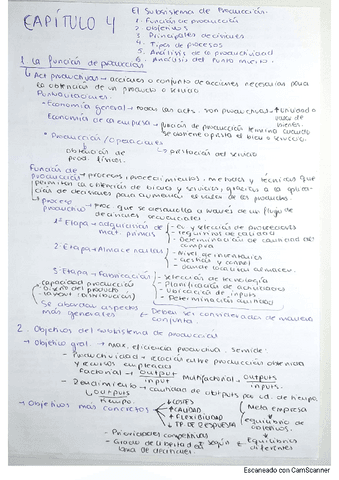 CAPÍTULO 4
El Subsistema de Producción.
1. Función de producción
2. Objetivos
3. Principales decisiones
4. Tipos de procesos
5. Análisis de la productividad
6. Análisis del Punto muerto
1. La función de producción
Act productivas → acciones o conjunto de acciones necesarias para
la obtención de un producto o servicio
- Economía general → todas las acts. son productivas → ↑ utilidad o
valor de
bienes.
- Economía de la empresa → función de producción termina cuando
se obtiene o presta el bien o servicio.
• Producción / Operaciones
obtención de
prod. físicos.
prestación del servicio
Función de
producción → procesos, procedimientos, métodos y técnicas que
permiten la obtención de bienes y servicios, gracias a la aplica-
ción de decisiones para aumentar el valor de los productos.
proceso
productivo → Proc que se desarrolla a través de un flujo de
decisiones secuenciales.
1ª Etapa → adquisición de
mat. primas
- selección de proveedores
- requisitos de calidad
- Determinación de cantidad de
compra
2ª Etapa → Almacenarlas
- Nivel de inventarios
- Gestión y control
- Donde localizar almacén.
3ª Etapa → Fabricación
- Selección de tecnología
- Planificación de actividades
- Ubicación de inputs
- Determinación
capacidad producción
diseño del producto
layout (distribución)
Se abordan aspectos
más generales
Deben ser considerados de manera
conjunta.
2. Objetivos del subsistema de producción
- Objetivo gral. → max. eficiencia productiva. se mide:
- Productividad → relación entre producción obtenida
y recursos empleados
Factorial → output / input
Multifactorial → outputs / inputs.
- Rendimiento → cantidad de outputs por ud. de tiempo.
outputs / tiempo
- Objetivos más concretos
↓ COSTES
↑ CALIDAD
↑ FLEXIBILIDAD
↓ TP. DE RESPUESTA
Meta empresa
equilibrio de
objetivos.
- Prioridades competitivas
- Grado de libertad según
toma de decisiones
Equilibrios
diferentes
Escaneado con CamScanner